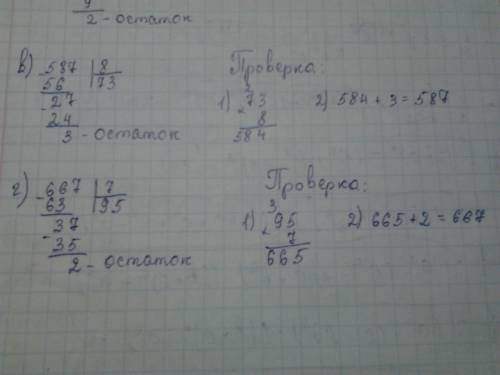 9
2 - остаток
в) - 587 | 8
56 73
- 27
24
3 - остаток
Проверка:
1) 2
73
× 8
584
2) 584 + 3 = 587
г) - 667 | 7
63 95
- 37
35
2 - остаток
Проверка:
1) 3
95
× 7
665
2) 665 + 2 = 667